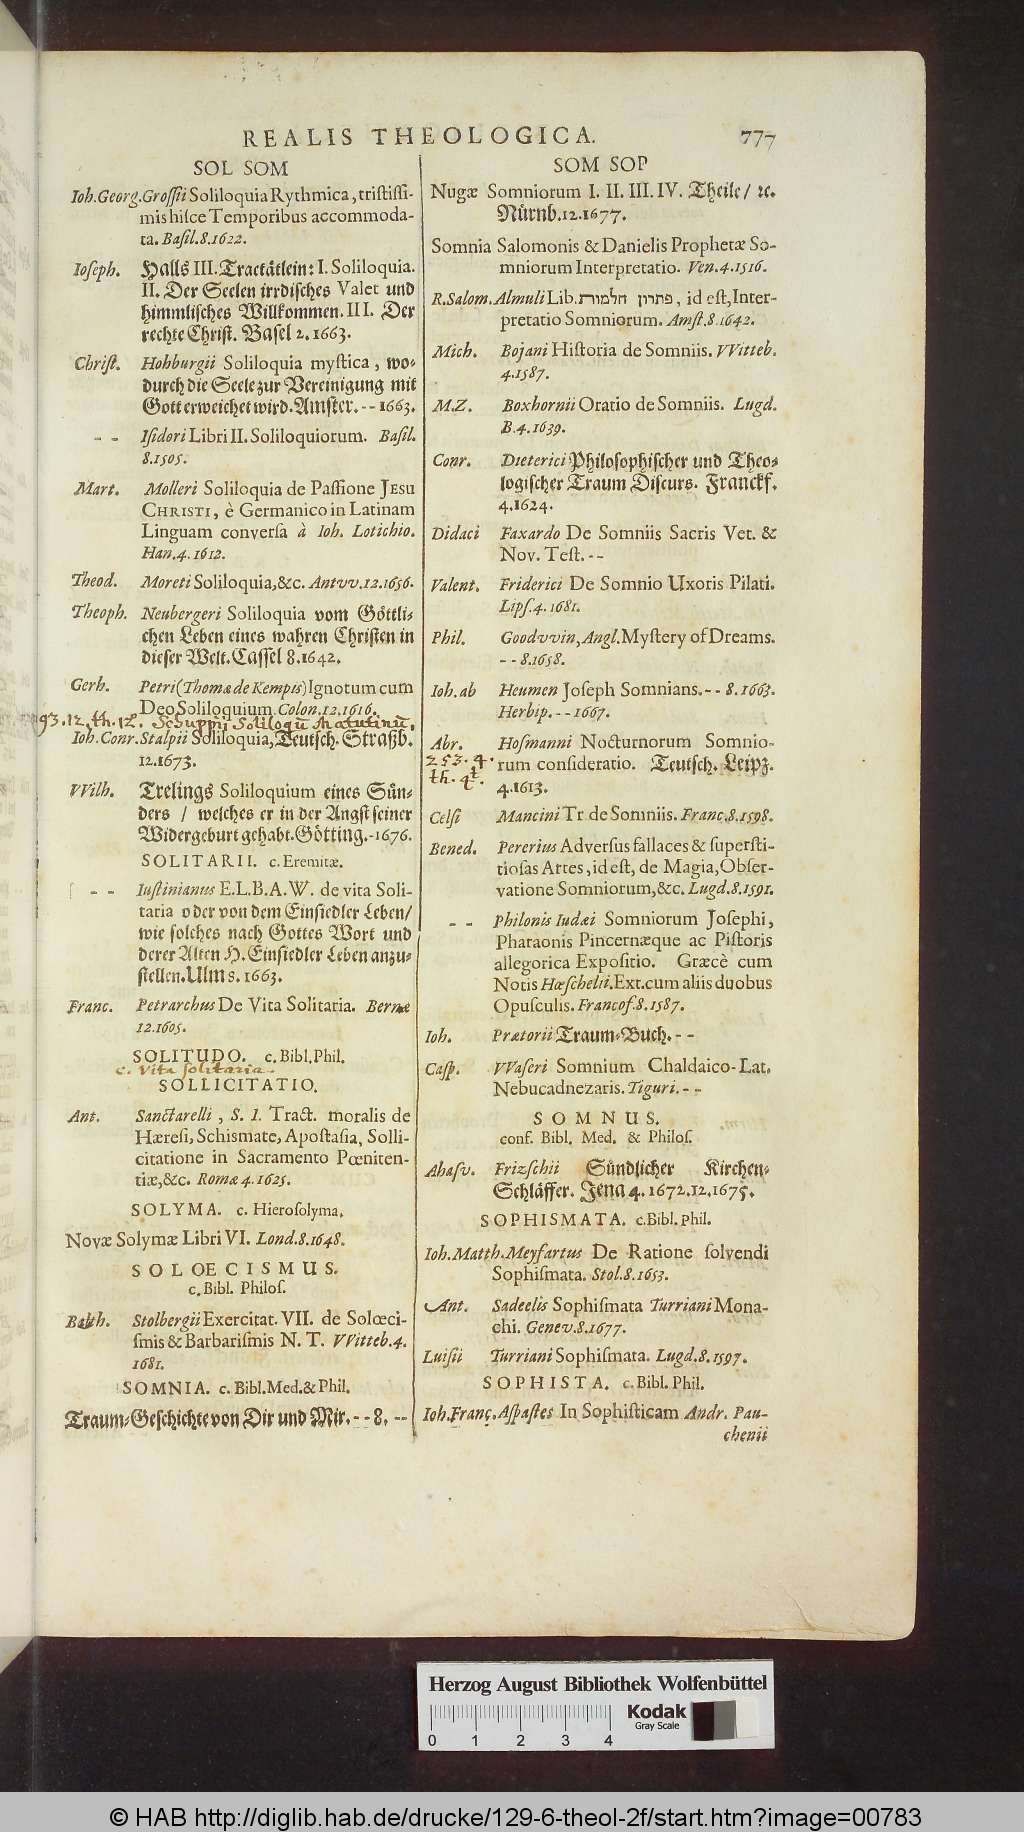 REALIS THEOLOGICA. 777
SOL SOM
Ioh. Georg. Grossii Soliloquia Rythmica, tristissi-
mis hisce Temporibus accommoda-
ta. Basil. 8. 1622.
Ioseph. Halls III. Tractätlein: I. Soliloquia.
II. Der Seelen irrdisches Valet und
himmlisches Willkommen. III. Der
rechte Christ. Basel 2. 1663.
Christ. Hohburgii Soliloquia mystica, wo-
durch die Seele zur Vereinigung mit
Gott erweichet wird. Amster. -- 1663.
-- Isidori Libri II. Soliloquiorum. Basil.
8. 1505.
Mart. Molleri Soliloquia de Passione JESU
CHRISTI, è Germanico in Latinam
Linguam conversa à Ioh. Lotichio.
Han. 4. 1612.
Theod. Moreti Soliloquia, &c. Antvv. 12. 1656.
Theoph. Neubergeri Soliloquia vom Göttli-
chen Leben eines wahren Christen in
dieser Welt. Cassel 8. 1642.
Gerh. Petri (Thomæ de Kempis) Ignotum cum
Deo Soliloquium Colon. 12. 1616.
93.12.th.12. Schuppii Soliloqu Matutinū.
Ioh. Conr. Stalpii Soliloquia, Teutsch. Straßb.
12. 1673.
VVilh. Trelings Soliloquium eines Sün-
ders / welches er in der Angst seiner
Widergeburt gehabt. Götting. - 1676.
SOLITARII. c. Eremitæ.
-- Iustinianus E.L.B.A.W. de vita Soli-
taria oder von dem Einsiedler Leben/
wie solches nach Gottes Wort und
derer Alten H. Einsiedler Leben anzu-
stellen. Ulm 8. 1663.
Franc. Petrarchus De Vita Solitaria. Bernæ
12. 1605.
SOLITUDO. c. Bibl. Phil.
c. Vita solitaria.
SOLLICITATIO.
Ant. Sanctarelli, S. I. Tract. moralis de
Hæresi, Schismate, Apostasia, Solli-
citatione in Sacramento Pœniten-
tiæ, &c. Romæ 4. 1625.
SOLYMA. c. Hierosolyma.
Novæ Solymæ Libri VI. Lond. 8. 1648.
SOLOECISMUS.
c. Bibl. Philos.
Balth. Stolbergii Exercitat. VII. de Solœci-
smis & Barbarismis N. T. VVitteb. 4.
1681.
SOMNIA. c. Bibl. Med. & Phil.
Traum-Geschichte von Dir und Mir. -- 8. --
SOM SOP
Nugæ Somniorum I. II. III. IV. Theile / ꝛc.
Nürnb. 12. 1677.
Somnia Salomonis & Danielis Prophetæ So-
mniorum Interpretatio. Ven. 4. 1516.
R. Salom. Almuli Lib. פתרון חלמות, id est, Inter-
pretatio Somniorum. Amst. 8. 1642.
Mich. Bojani Historia de Somniis. VVitteb.
4. 1587.
M.Z. Boxhornii Oratio de Somniis. Lugd.
B. 4. 1639.
Conr. Dieterici Philosophischer und Theo-
logischer Traum Discurs. Franckf.
4. 1624.
Didaci Faxardo De Somniis Sacris Vet. &
Nov. Test. --
Valent. Friderici De Somnio Uxoris Pilati.
Lips. 4. 1681.
Phil. Goodvvin, Angl. Mystery of Dreams.
-- 8. 1658.
Ioh. ab Heumen Joseph Somnians. -- 8. 1663.
Herbip. -- 1667.
Abr. Hosmanni Nocturnorum Somnio-
253.4. rum consideratio. Teutsch. Leipz.
th. 4t. 4. 1613.
Celsi Mancini Tr de Somniis. Franc. 8. 1598.
Bened. Pererius Adversus fallaces & supersti-
tiosas Artes, id est, de Magia, Obser-
vatione Somniorum, &c. Lugd. 8. 1591.
-- Philonis Iudæi Somniorum Josephi,
Pharaonis Pincernæque ac Pistoris
allegorica Expositio. Græcè cum
Notis Hœschelii. Ext. cum aliis duobus
Opusculis. Francof. 8. 1587.
Ioh. Prætorii Traum-Buch. --
Casp. VVaseri Somnium Chaldaico-Lat.
Nebucadnezaris. Tiguri. --
SOMNUS.
conf. Bibl. Med. & Philos.
Ahasv. Frizschii Sündlicher Kirchen-
Schläffer. Jena 4. 1672. 12. 1675.
SOPHISMATA. c. Bibl. Phil.
Ioh. Matth. Meyfartus De Ratione solvendi
Sophismata. Stol. 8. 1653.
Ant. Sadeelis Sophismata Turriani Mona-
chi. Genev. 8. 1677.
Luisii Turriani Sophismata. Lugd. 8. 1597.
SOPHISTA. c. Bibl. Phil.
Ioh. Franc. Aspastes In Sophisticam Andr. Pau-
chenii
Herzog August Bibliothek Wolfenbüttel
Kodak
Gray Scale
0 1 2 3 4
© HAB http://diglib.hab.de/drucke/129-6-theol-2f/start.htm?image=00783